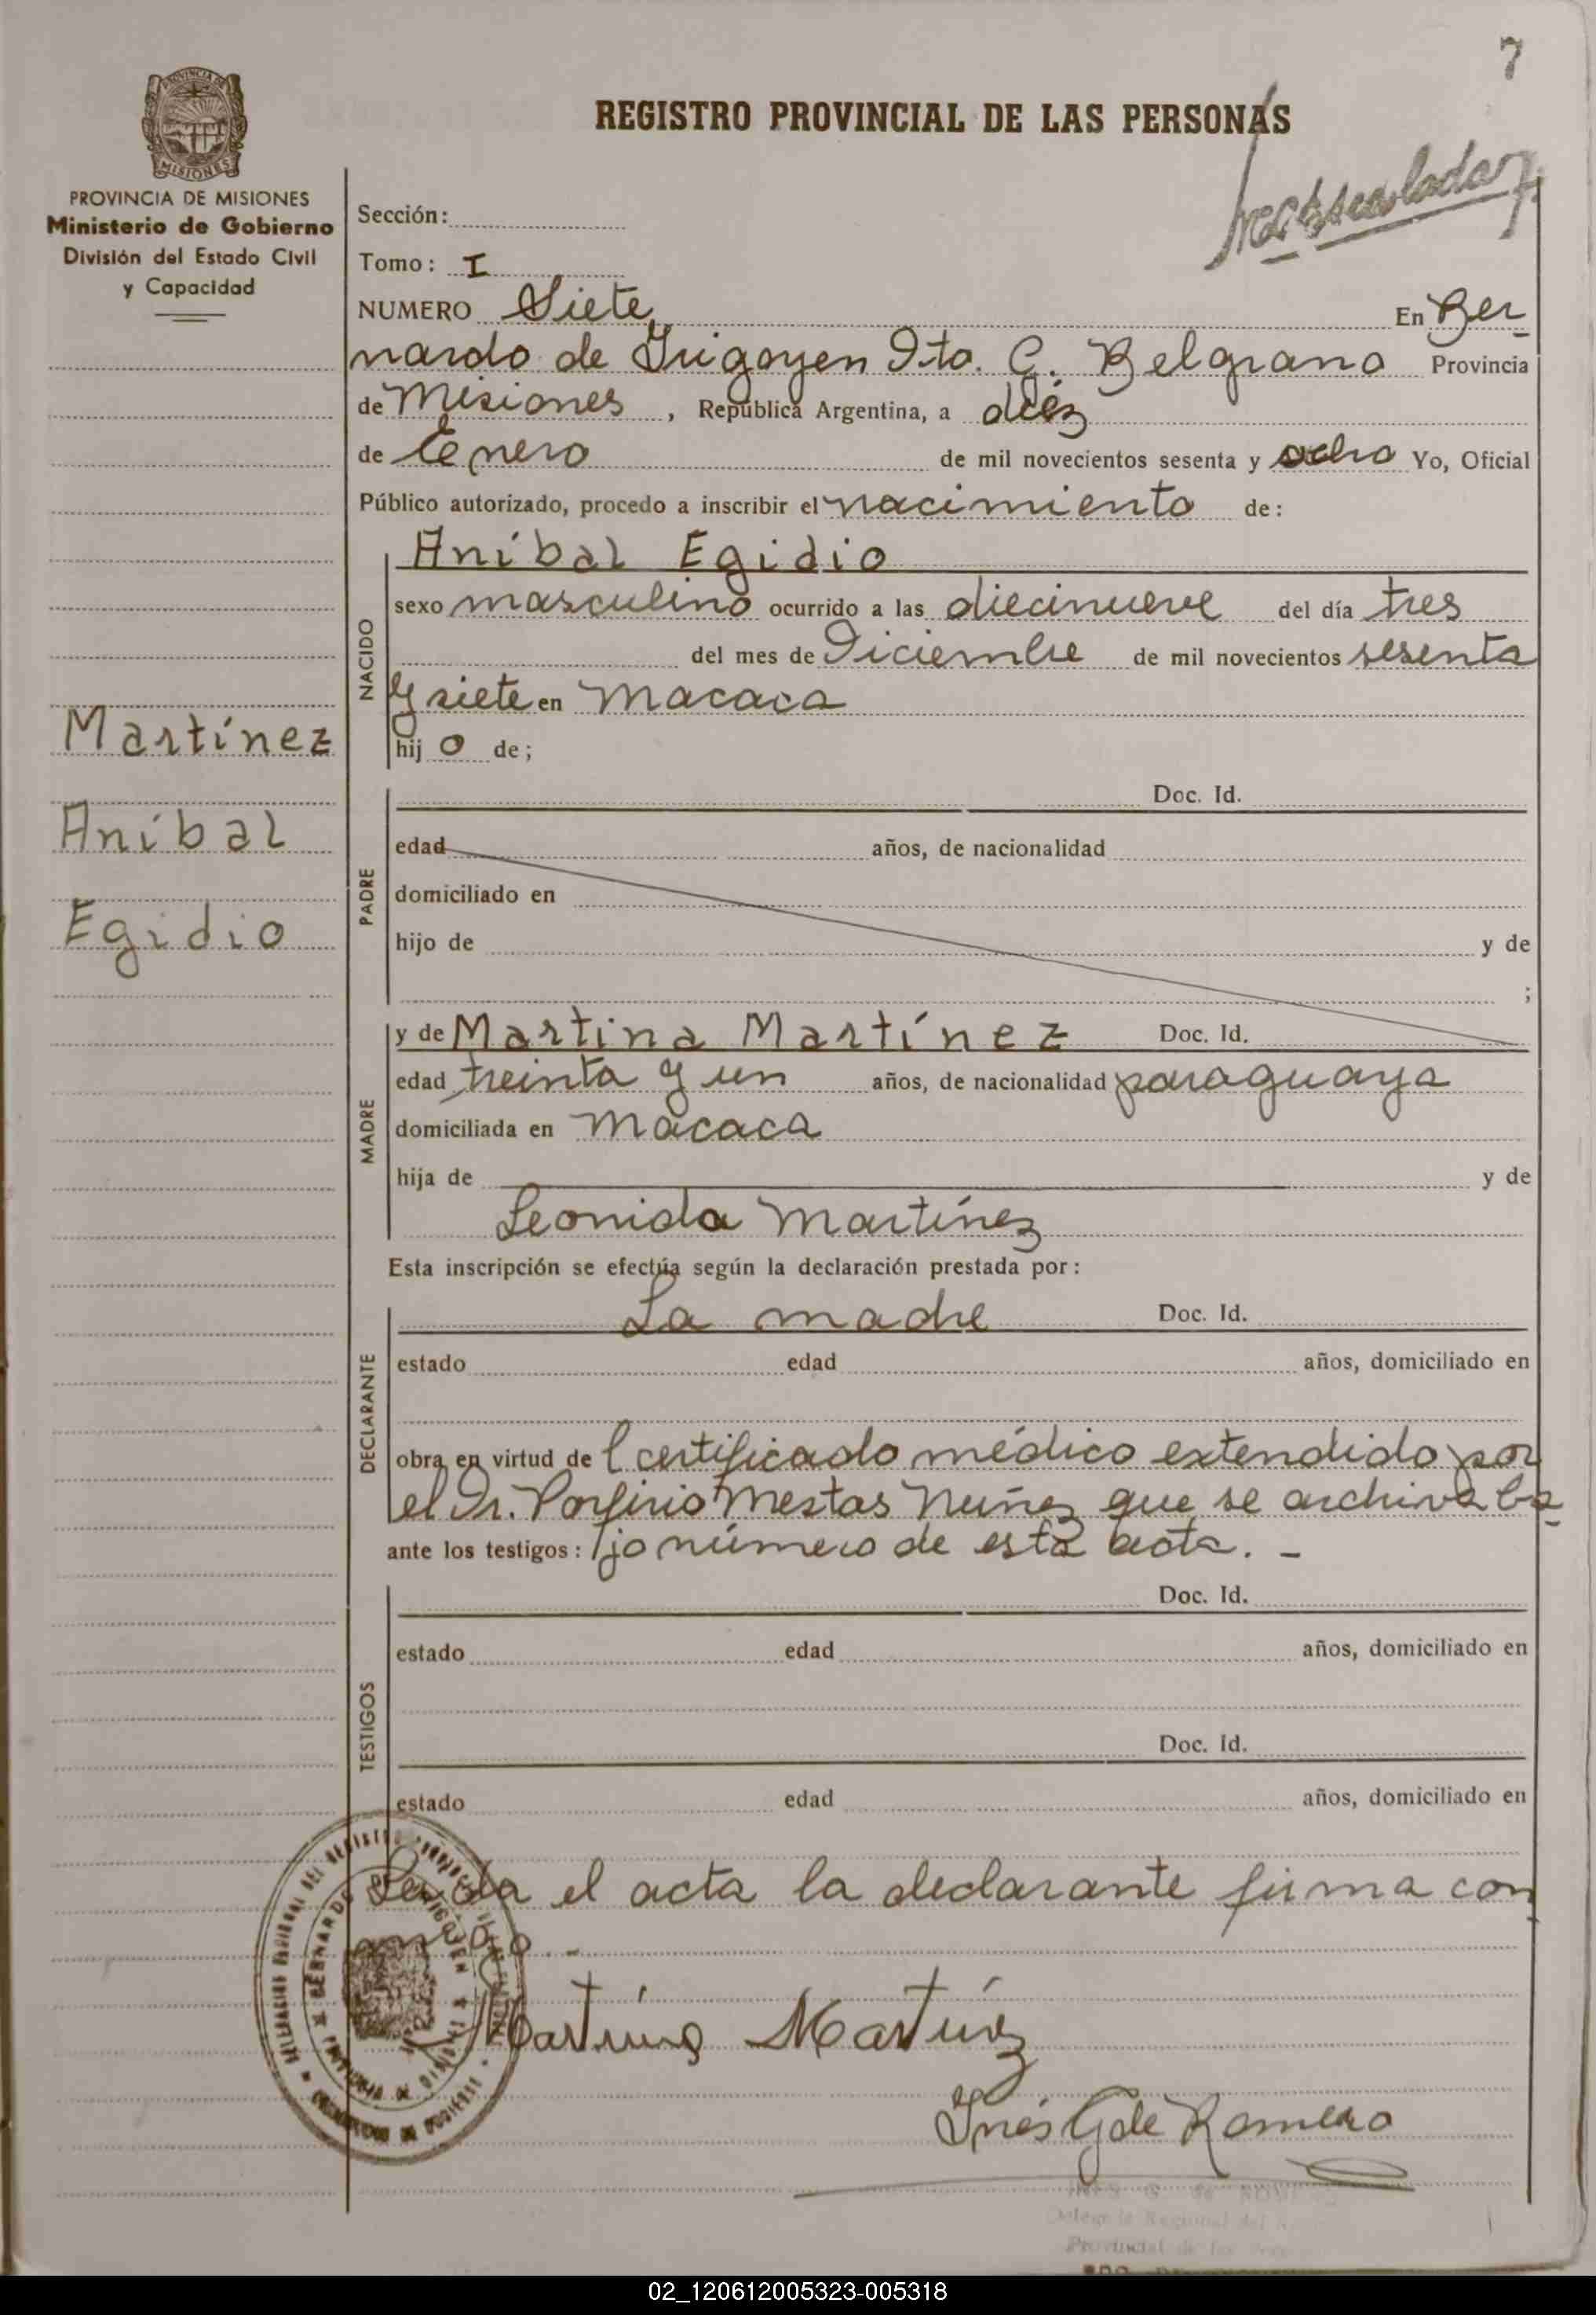 7
REGISTRO PROVINCIAL DE LAS PERSONAS
MISIONES
PROVINCIA DE MISIONES
Ministerio de Gobierno
División del Estado Civil
y Capacidad
Martínez
Aníbal
Egidio
Sección:
Tomo: I
NUMERO Siete En Ber
nardo de Irigoyen Dto. G. Belgrano Provincia
de Misiones, República Argentina, a diéz
de Enero de mil novecientos sesenta y ocho Yo, Oficial
Público autorizado, procedo a inscribir el nacimiento de:
NACIDO
Aníbal Egidio
sexo masculino ocurrido a las diecinueve del día tres
del mes de Diciembre de mil novecientos sesenta
y siete en Macaca
hijo de;
PADRE
Doc. Id.
edad años, de nacionalidad
domiciliado en
hijo de y de
;
MADRE
y de Martina Martínez Doc. Id.
edad treinta y un años, de nacionalidad paraguaya
domiciliada en Macaca
hija de y de
Leonida Martínez
Esta inscripción se efectúa según la declaración prestada por:
DECLARANTE
La madre Doc. Id.
estado edad años, domiciliado en
obra en virtud de l certificado médico extendido por
el Dr. Porfirio Mestas Nuñez que se archiva ba
ante los testigos: jo número de esta acta. -
TESTIGOS
Doc. Id.
estado edad años, domiciliado en
Doc. Id.
estado edad años, domiciliado en
Leída el acta la declarante firma con
migo. -
Martina Martínez
Inés G de Romero
02_120612005323-005318